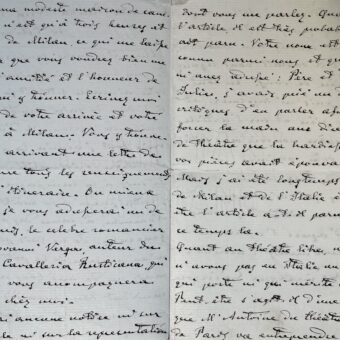 une modeste maison de cam
n'est qu'à trois heures et
de Milan, ce qui me laisse
que vous voudrez bien me
amitié et l'honneur de
m'y donner. Ecrivez-moi
de votre arrivée et votre
à Milan. Vous y trouve
arrivant une lettre de
tous les renseignements
itinéraire. Ou mieux
je vous adresserai un de
mis, le celebre romancier
ovanni Verga auteur des
Cavalleria Rusticana, qui
vous accompagnera
chez moi.
ai aucune notice ni sur
ni sur la representation
dont vous me parlez. Qua
l'article il est très probab
ait paru. Votre nom est
connu parmi nous et qu
m'avez adressé: Père et
Julie, j'avais prié un d
critiques d'en parler af
forcer la main aux dire
de théâtre que la hardiess
vos pièces avait épouva
Mais j'ai été longtemps
de Milan et de l'Italie
être l'article a-t-il paru
ce temps là.
Quant au théâtre libre, n
n'avons pas en Italie un
qui porte ni qui mérite
Peut-être s'agit-il d'une
que M. Antoine du théâtre
de Paris va entreprendre